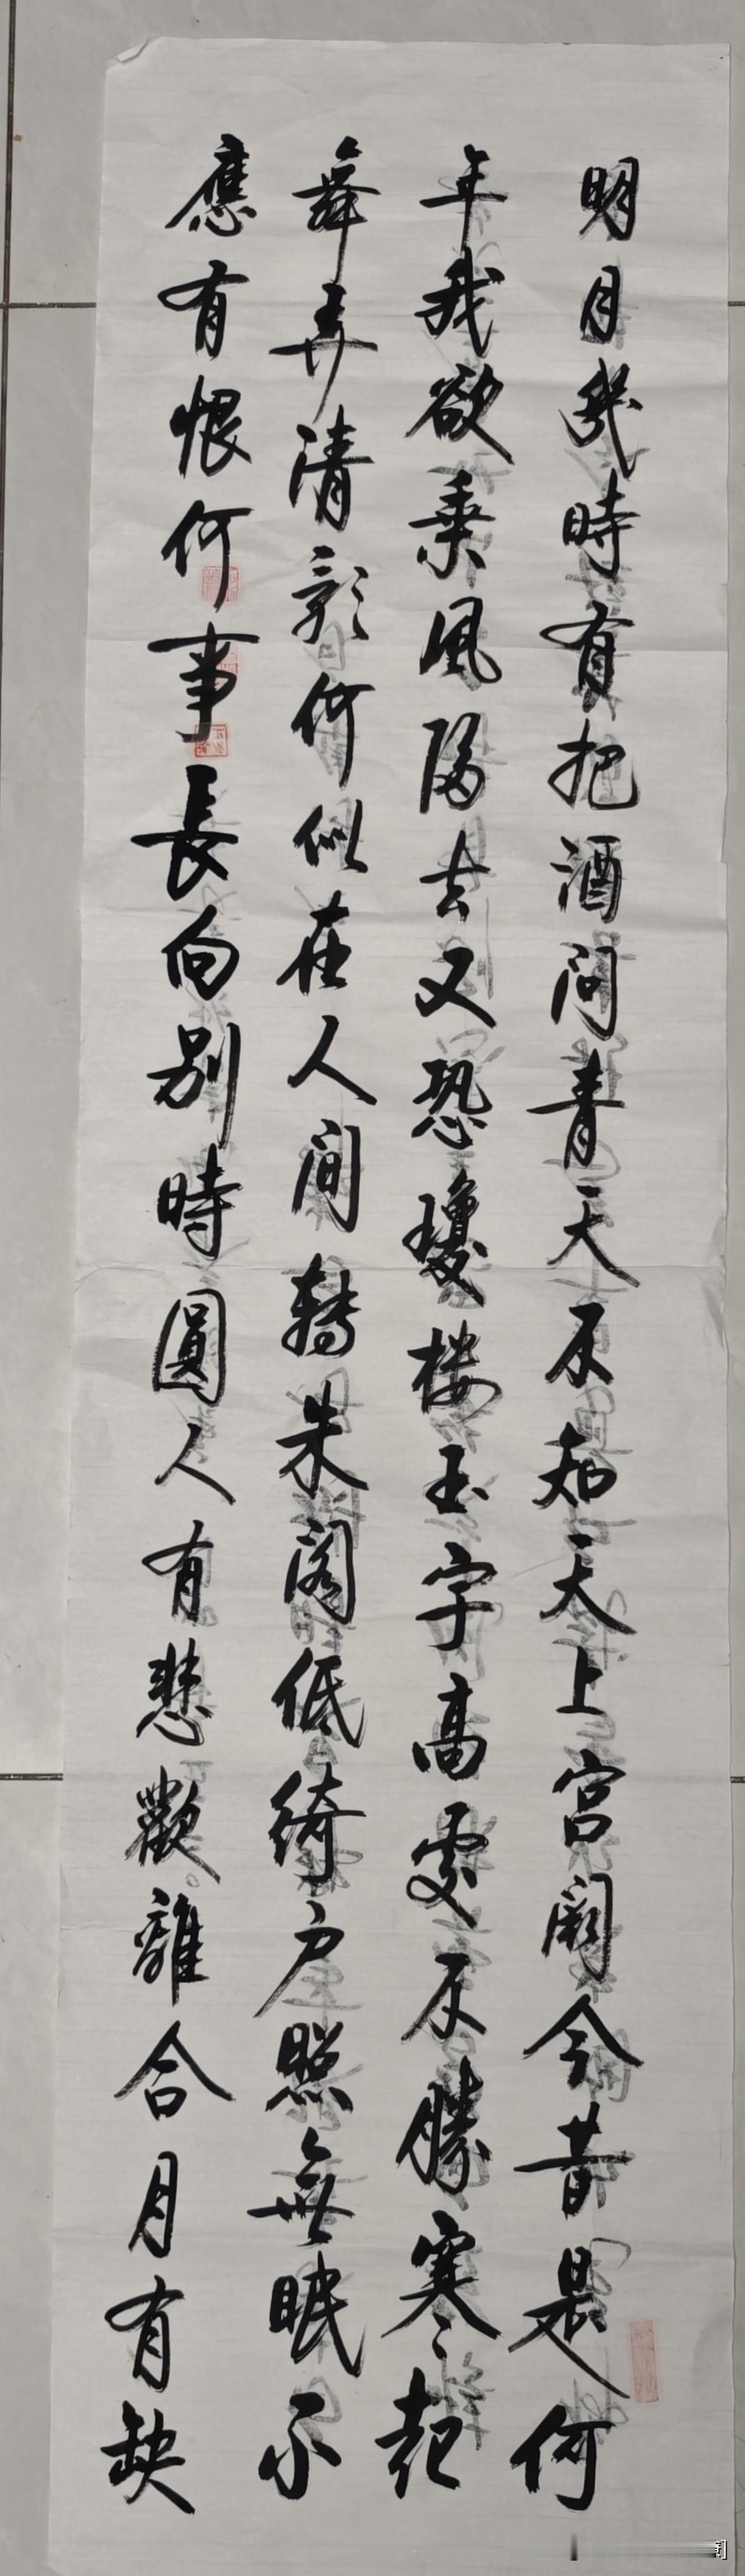 明月幾時有把酒问青天不知天上宫阙今昔是何
年我欲乗風歸去又恐瓊楼玉宇高處不勝寒起
舞弄清影何似在人间轉朱阁低绮户照無眠不
應有恨何事長向别時圓人有悲歡離合月有缺